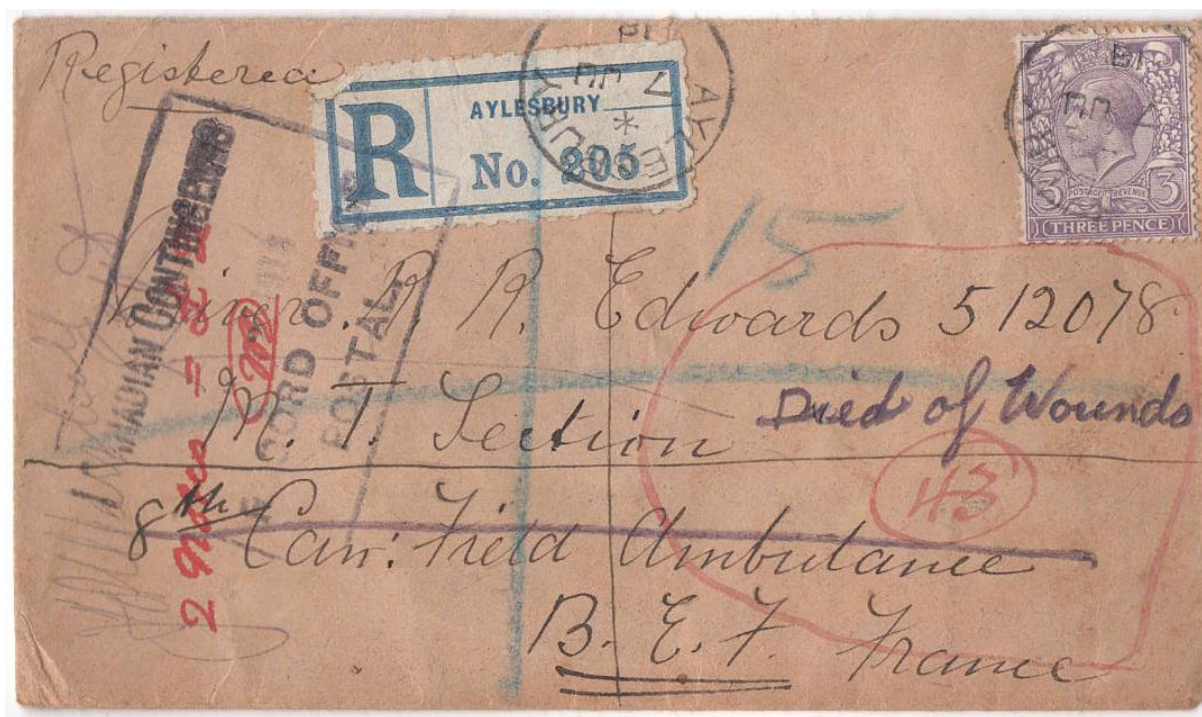 Registered
R
AYLESBURY
No. 205
AYLESBURY
POSTAGE REVENUE
3 3
THREE PENCE
CANADIAN CONTINGENTS
RECORD OFFICE
POSTAL
15
Driver. R. R. Edwards 512078
M. T. Section
Died of Wounds
43
8th Can: Field Ambulance
B. E. F. France
2